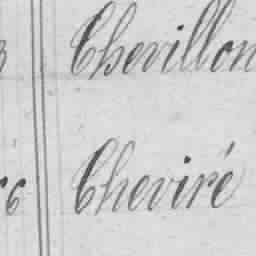 Chevillon
6 Cheviré